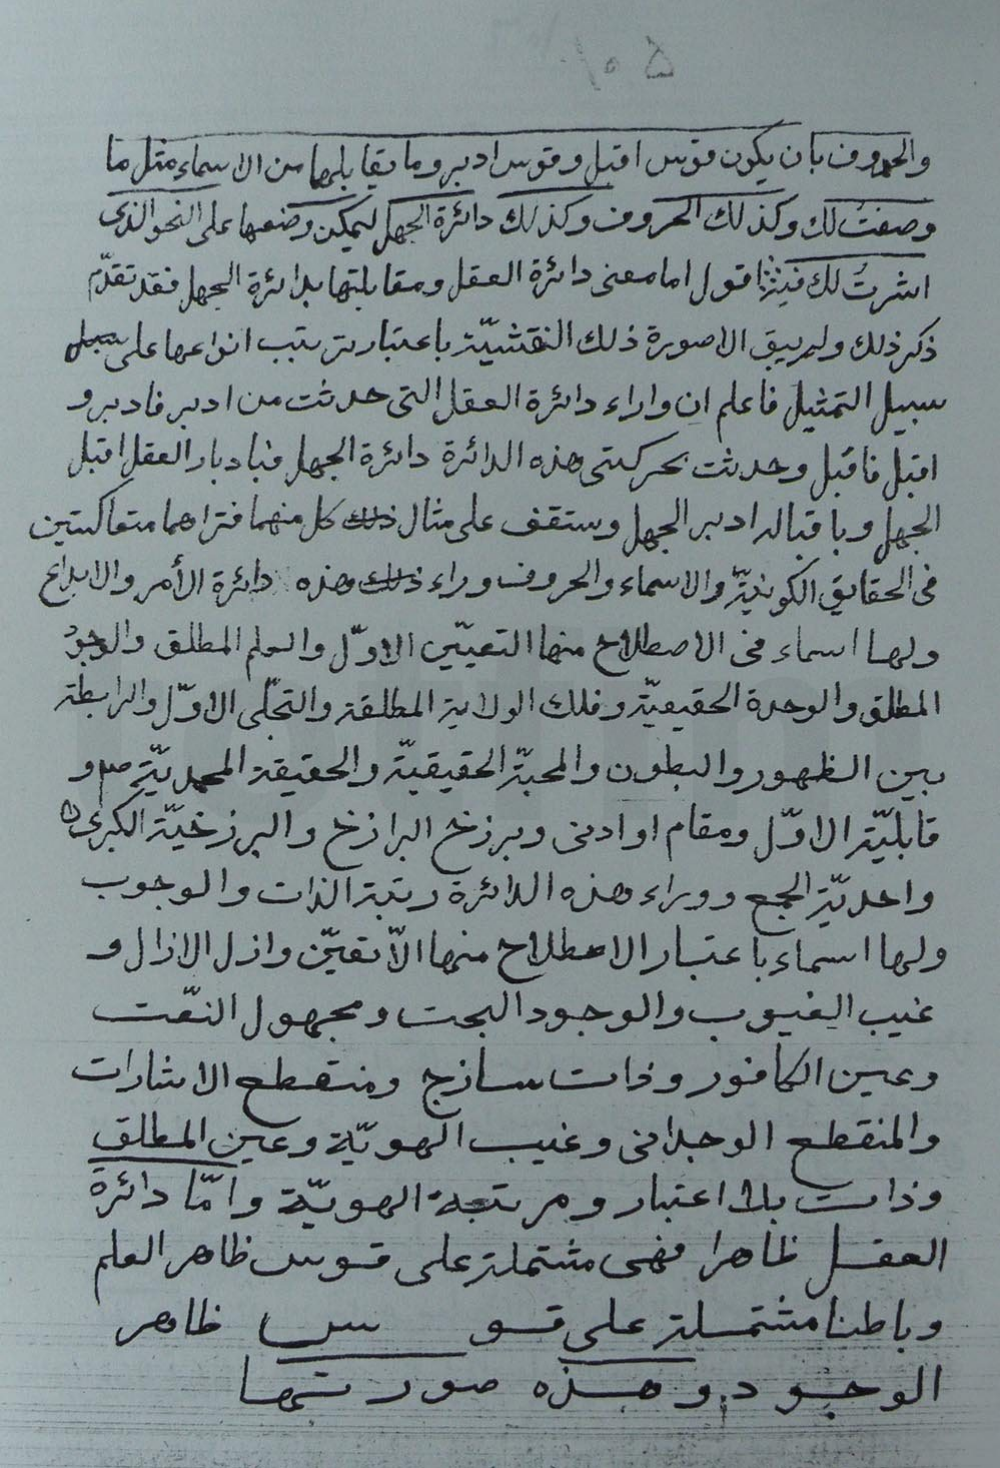 والحروف بان يكون قوس اقبل وقوس ادبر وما يقابلهما من الاسماء مثل ما
وصفت لك وكذلك الحروف وكذلك دائرة الجهل ليمكن وضعها على النحو الذى
اشرت لك اقول اما معنى دائرة العقل ومقابلتها بدائرة الجهل فقد تقدّم
ذكر ذلك ولم يبق الا صورة ذلك النقشيّة باعتبار ترتيب انواعها على
سبيل التمثيل فاعلم ان وراء دائرة العقل التى حدثت من ادبر فادبر و
اقبل فاقبل وحدثت بحركتى هذه الدائرة دائرة الجهل فبادبار العقل اقبل
الجهل وباقباله ادبر الجهل وستقف على مثال كل منهما فتراهما متعاكستين
فى الحقايق الكونيّة والاسماء والحروف وراء هذه دائرة الأمر والابداع
ولها اسماء فى الاصطلاح منها التعيّن الاوّل والعلم المطلق والوجود
المطلق والوحدة الحقيقيّة وفلك الولاية المطلقة والتجلّى الاوّل والرابطة
بين الظهور والبطون والمحبّة الحقيقيّة والحقيقة المحمديّة ص و
قابليّة الاوّل ومقام او ادنى وبرزخ البرازخ والبرزخيّة الكبرى
واحديّة الجمع ووراء هذه الدائرة رتبة الذات والوجوب
ولها اسماء باعتبار الاصطلاح منها الّاتعيّن وازل الازال و
غيب الغيوب والوجود البحت ومجهول النّعت
وعين الكافور وذات ساذج ومنقطع الاشارات
والمنقطع الوجدانى وغيب الهويّة وعين المطلق
وذات بلا اعتبار ومرتبة الهويّة وامّا دائرة
العقل ظاهرا فهى مشتملة على قوس ظاهر العلم
وباطنا مشتملة على قوس ظاهر
الوجود وهذه صورتها